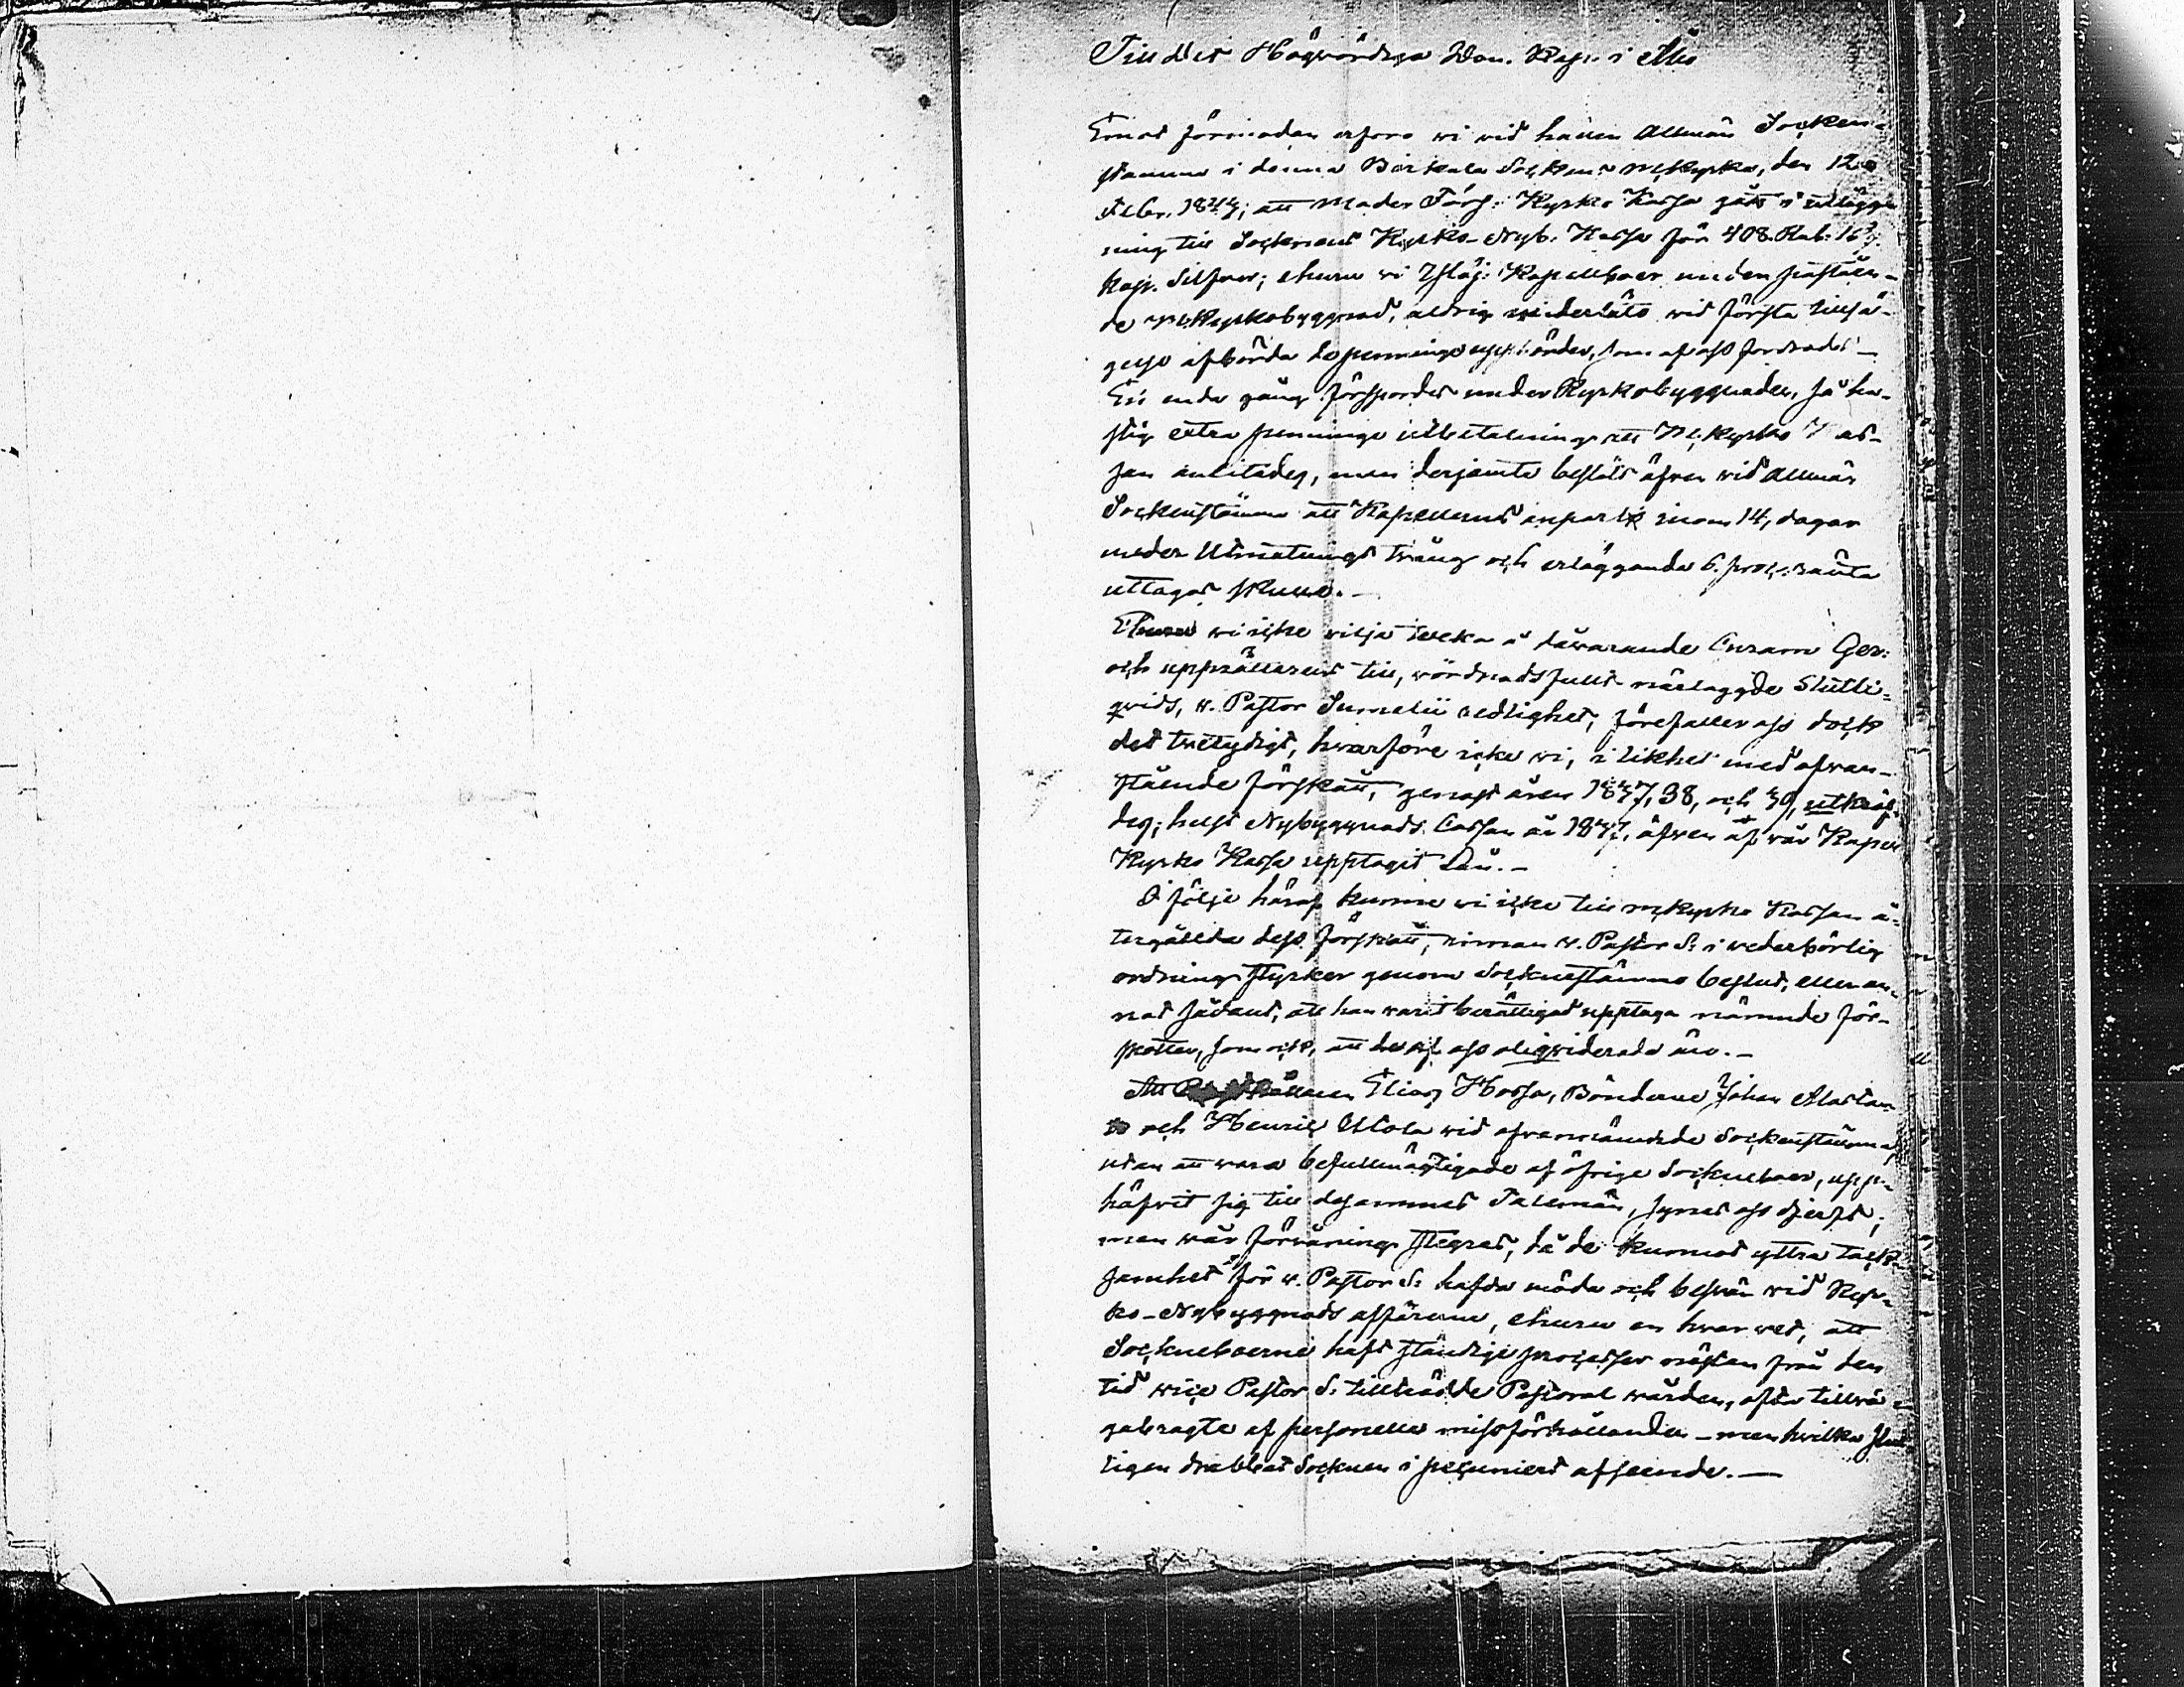 Till det Högvördiga Dom. Kap. i Åbo
Emot förmodan erforo wi wid hållen Allmän Socken-
stämma i denna Birkala Sockens mkyrka, den 12
Febr. 1843; att Moder Förs: Kyrko Kassa gått i utlägg-
ning till Sockenens Kyrko-Nyb. Kassa för 408 Rub. 16
kop. Silfver; ehuru wi Ylöj: Kapellboer under påståen-
de mkyrkobyggnad, aldrig underläto wid första tillsä-
gelse afbörda de penninge uppbörder, som af oss fordrades_
En enda gång förspordes under Kyrkobyggnaden, så ha-
stig extra penninge utbetalning att M. Kyrko Kas-
san anlitades, men derjemte beslöts äfven wid Allmän
Sockenstämma att Kapellernes anpart inom 14, dagar
meder Utmätnings twång och erläggande 6. proc. ränta
uttagas skulle._
Ehuru wi icke vilja tweka å dåwarande Curam Ger:
och upprättarens till, wördnadsfullt närlaggde Slutli-
qvids, v. Pastor Sumelii redlighet, förefaller oss dock
det twetydigt, hwarföre icke wi, i likhet med ofwan-
stående förskått, genast åren 1837, 38, och 39, utkräf-
des; helst Nybyggnads Cassan år 1837, äfven af wår Kapell
Kyrko Kassa upptagit Lån._
I följe häraf kunna wi icke till mkyrko Kassan å-
tergällda dess förskått, innan v. Pastor S: i wederbörlig
ordning styrker genom Sockenestämmo beslut, eller an-
nat sådant, att han warit berättigad upptaga nämnde för-
skotter, som ock, att de af oss oliqviderade äro._
Att Elias Hossa, Bönderne Johan Mattan
och Henric Uotola wid ofvannämnde Sockenstämma,
utan att wara befullmägtigade af öfrige Sockneboer, upp-
häfvit sig till desammes Talemän, synes oss djerft;
men wår förwåning stegras, då de kunnat yttra tack-
samhet för v. Pastor S: hafda möda och beswär wid Kyr-
ko-Nybyggnads affärerne, ehuru en hwar wet, att
Sockneboerne haft ständige processer nästan från den
tid wice Pastor S: tillträdde Pastoral wården, ofta tillwä-
gabragte af personella missförhållanden _ men hvilka slut-
ligen drabbat Socknen i pecuniert afseende._